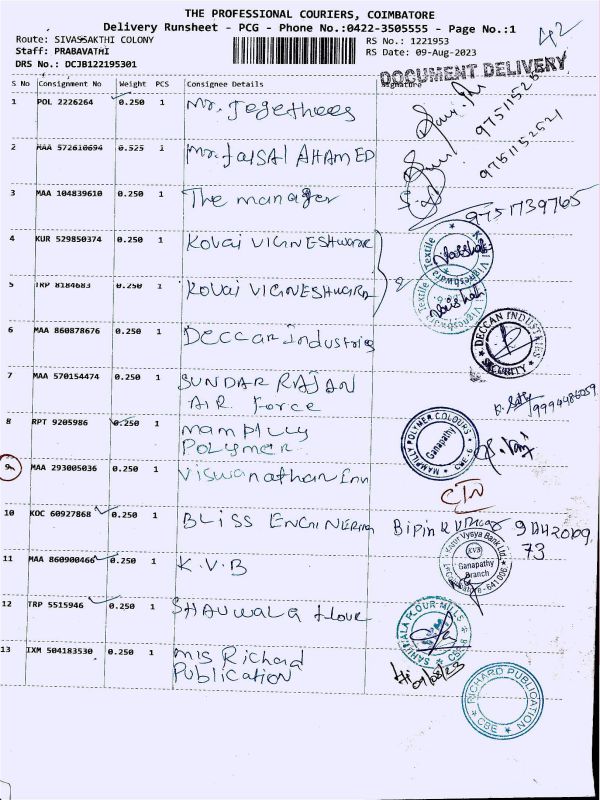 THE PROFESSIONAL COURIERS, COIMBATORE
Delivery Runsheet - PCG - Phone No.:0422-3505555 - Page No.:1
42
Route: SIVASSAKTHI COLONY
RS No.: 1221953
Staff: PRABAVATHI
RS Date: 09-Aug-2023
DRS No.: DCJB122195301
DOCUMENT DELIVERY
S No Consignment No Weight PCS Consignee Details Signature
1 POL 2226264 0.250 1 Mr. Jegathees
2 MAA 572610694 0.525 1 Mr. faisal AHAMED
9751152521
3 MAA 104839610 0.250 1 The manager
9751739765
4 KUR 529850374 0.250 1 KOVAI VIGNESHWARA
5 TRP 8184683 0.250 1 KOVAI VIGNESHWARA
2
6 MAA 860878676 0.250 1 Deccan Industries
DECCAN INDUSTRIES
SECURITY
7 MAA 570154474 0.250 1 SUNDAR RAJAN
AIR Force
8 RPT 9205986 0.250 1 MAMPILLY
POLYMER
MAMPILLY POLYMER COLOURS
Ganapathy
CBE-6
MAA 293005036 0.250 1 Viswanathan Inn
10 KOC 60927868 0.250 1 BLISS ENGINEERING
73
Karur Vysya Bank Ltd.
KVB
Ganapathy
Branch
641 006
11 MAA 860900466 0.250 1 K.V.B
12 TRP 5515946 0.250 1 SHAUWALA flour
13 IXM 504183530 0.250 1 M/S Richard
Publication
RICHARD PUBLICATION
CBE